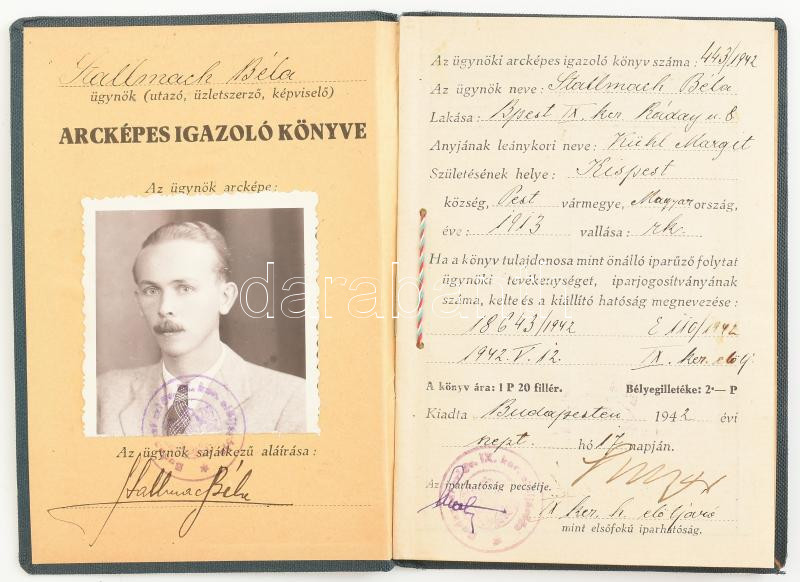 Stallmach Béla
ügynök (utazó, üzletszerző, képviselő)
ARCKÉPES IGAZOLÓ KÖNYVE
Az ügynök arcképe:
Az ügynök sajátkezű aláírása:
Stallmach Béla
Az ügynöki arcképes igazoló könyv száma: 443/1942
Az ügynök neve: Stallmach Béla
Lakása: Bpest IX. ker. Ráday u. 8
Anyjának leánykori neve: Kühl Margit
Születésének helye: Kispest
község, Pest vármegye, Magyarország,
éve: 1913 vallása: rk.
Ha a könyv tulajdonosa mint önálló iparűző folytat
ügynöki tevékenységet, iparjogosítványának
száma, kelte és a kiállító hatóság megnevezése:
18643/1942 E 110/1942
1942. V. 12. IX. ker. előlj.
A könyv ára: 1 P 20 fillér. Bélyegilletéke: 2·— P
Kiadta Budapesten 1942 évi
szept. hó 17 napján.
Az iparhatóság pecsétje.
IX ker. h. előljáró
mint elsőfokú iparhatóság.
darabanth